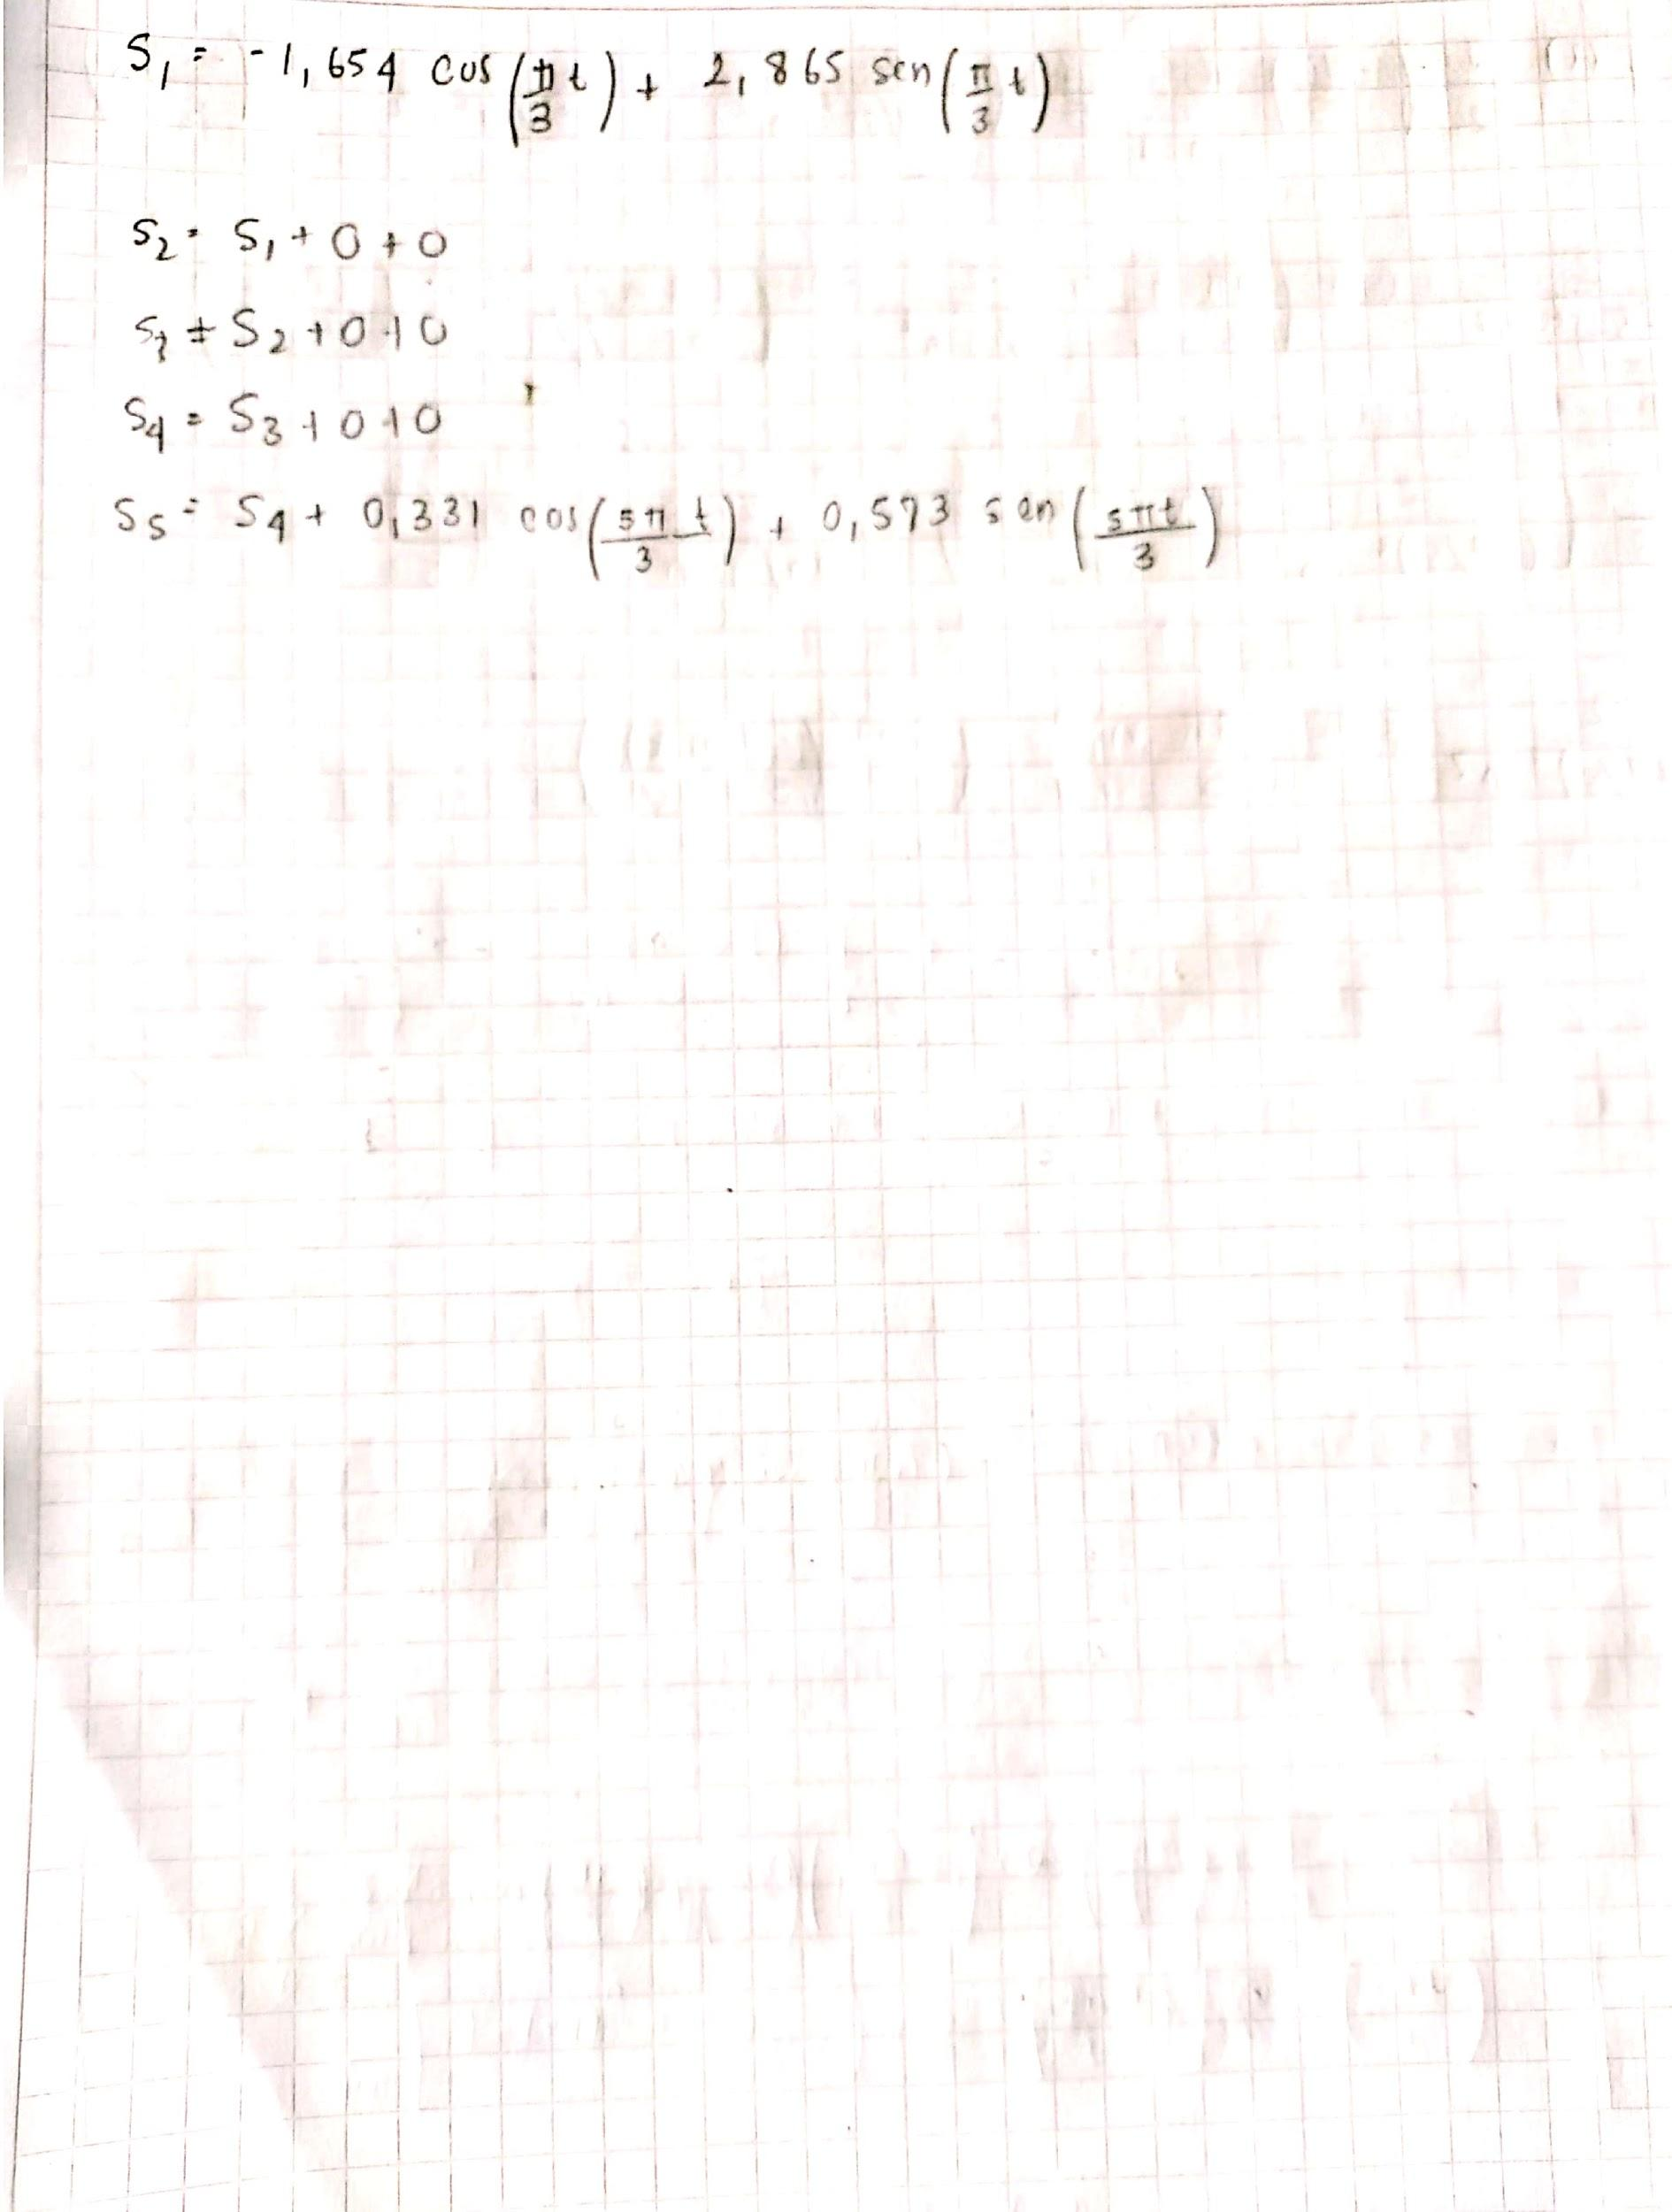 S₁ = -1,654 cos(π/3 t) + 2,865 sen(π/3 t)
S₂ = S₁ + 0 + 0
S₃ = S₂ + 0 + 0
S₄ = S₃ + 0 + 0
S₅ = S₄ + 0,331 cos(5π t/3) + 0,573 sen(5πt/3)